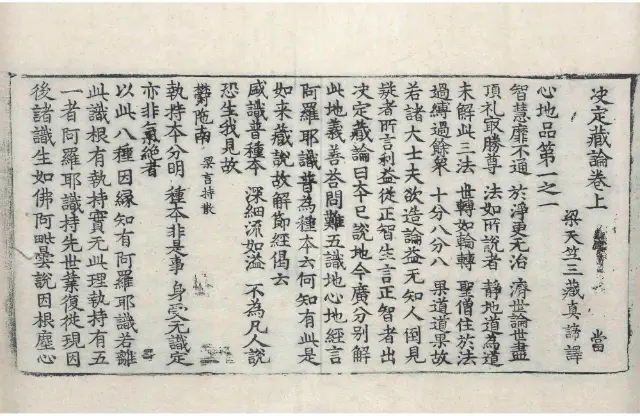 决定藏論卷上
當
梁天竺三藏真諦譯
心地品第一之一
智慧靡不通 於淨更无治 濟世論世盡
頂礼冣勝尊 法如所說者 静地道為道
未解此三法 世轉如輪轉 聖僧住於法
過縛過餘第 十分八分八 果道道果故
若諸大士夫欲造論益无知人倒見
疑者所言利益從正智生言正智者出
决定藏論曰本已說地今廣分别解
此地義善荅問難五識地心地經言
阿羅耶識普為種本云何知有此是
如来藏說故解節經偈云
咸識普種本 深細流如溢 不為凡人說
恐生我見故
欝陁南 梁言持散
執持本分明 種本非是事 身受无識定
亦非氣絶者
以此八種因縁知有阿羅耶識若離
此識根有執持實无此理執持有五
一者阿羅耶識持先世業復從現因
後諸識生如佛阿毗曇說因根塵心